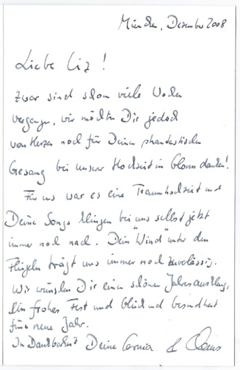 München, Dezember 2008
Liebe Liz!
Zwar sind schon viele Wochen
vergangen, wir möchten Dir jedoch
von Herzen noch für Deinen phantastischen
Gesang bei unserer Hochzeit in Glonn danken!
Für uns war es eine Traumhochzeit und
Deine Songs klingen bei uns selbst jetzt
immer noch nach. Dein "Wind" unter den
Flügeln trägt uns immer noch zuverlässig.
Wir wünschen Dir einen schönen Jahresausklang,
ein frohes Fest und Glück und Gesundheit
fürs neue Jahr.
In Dankbarkeit Deine & Claus